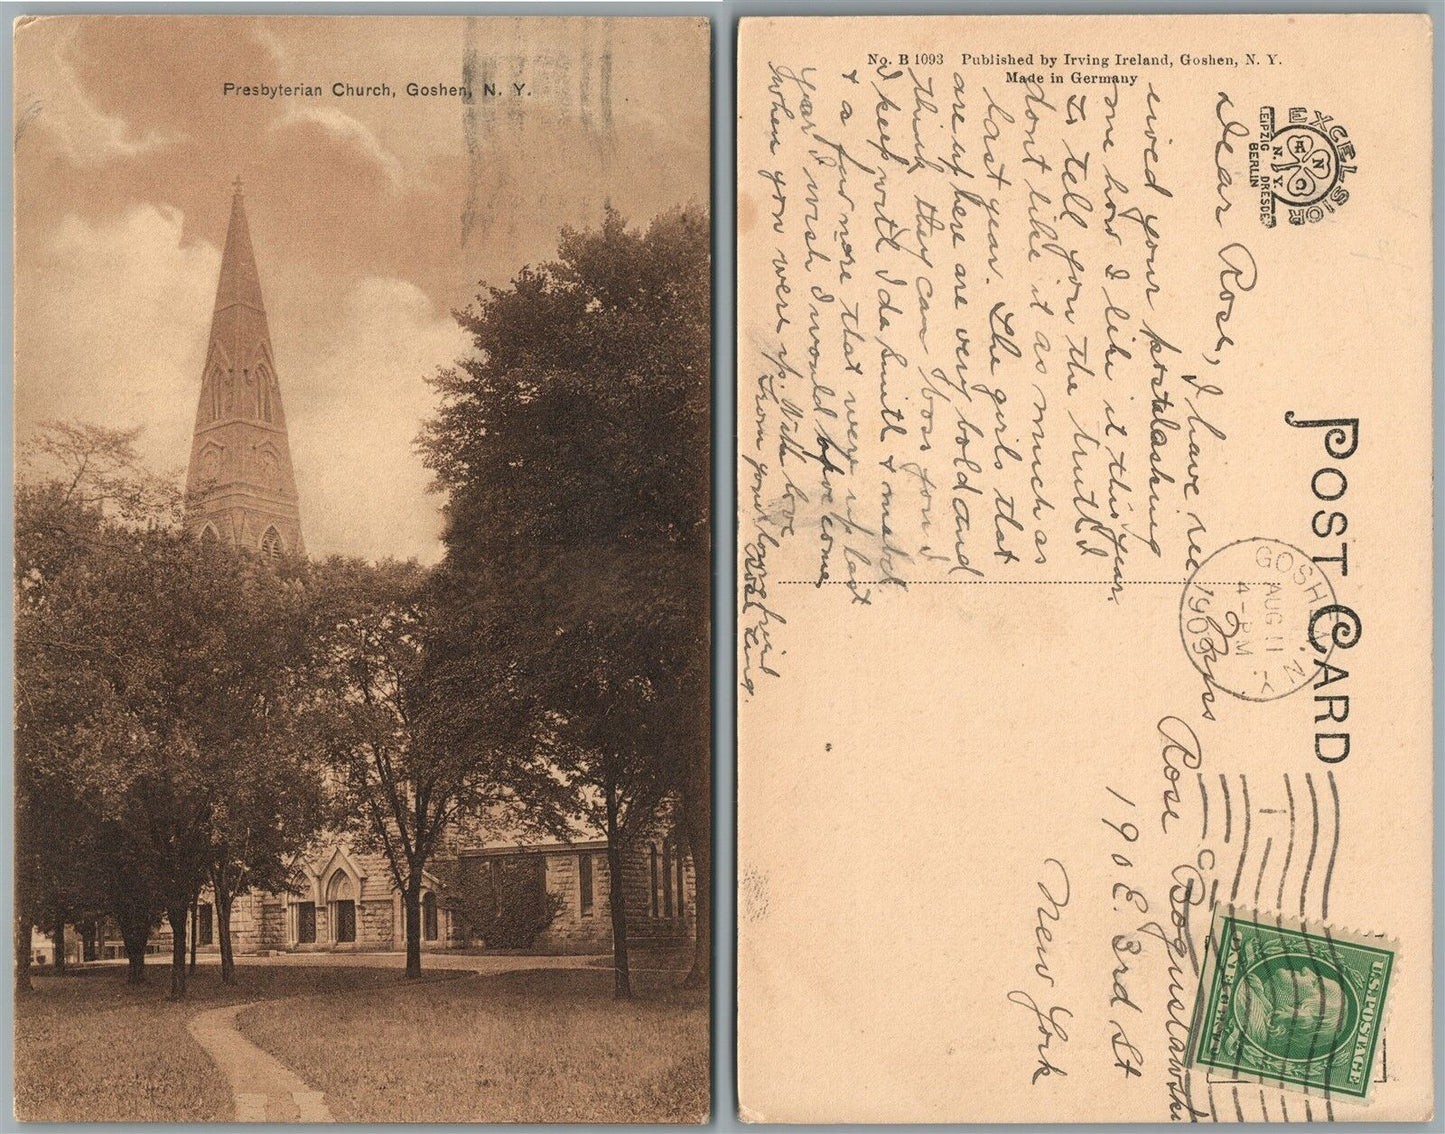 Presbyterian Church, Goshen, N. Y.
No. B 1093 Published by Irving Ireland, Goshen, N. Y.
Made in Germany
EXCELSIOR
A N C O
N. Y.
LEIPZIG DRESDEN
BERLIN
POST CARD
GOSHEN N.Y.
AUG 11
4-PM
1909
U.S. POSTAGE
Dear Rose, I have rec
eived your postal asking
me how I like it this year.
to tell you the truth I
dont like it as much as
last year. The girls that
are up here are very bold and
think they can boss you
I keep with Ida Smith &
& a few more that were up last
year I wish I would have come
when you were up. With love
From your loving friend
King.
Miss Rose Boguslawski
190 E. 3rd St
New York